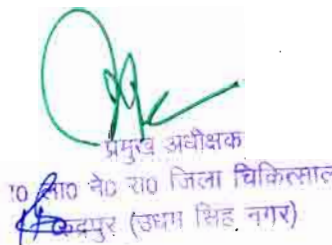 प्रमुख अधीक्षक
ला0 ने0 रा0 जिला चिकित्साल
रूद्रपुर (उधम सिंह नगर)